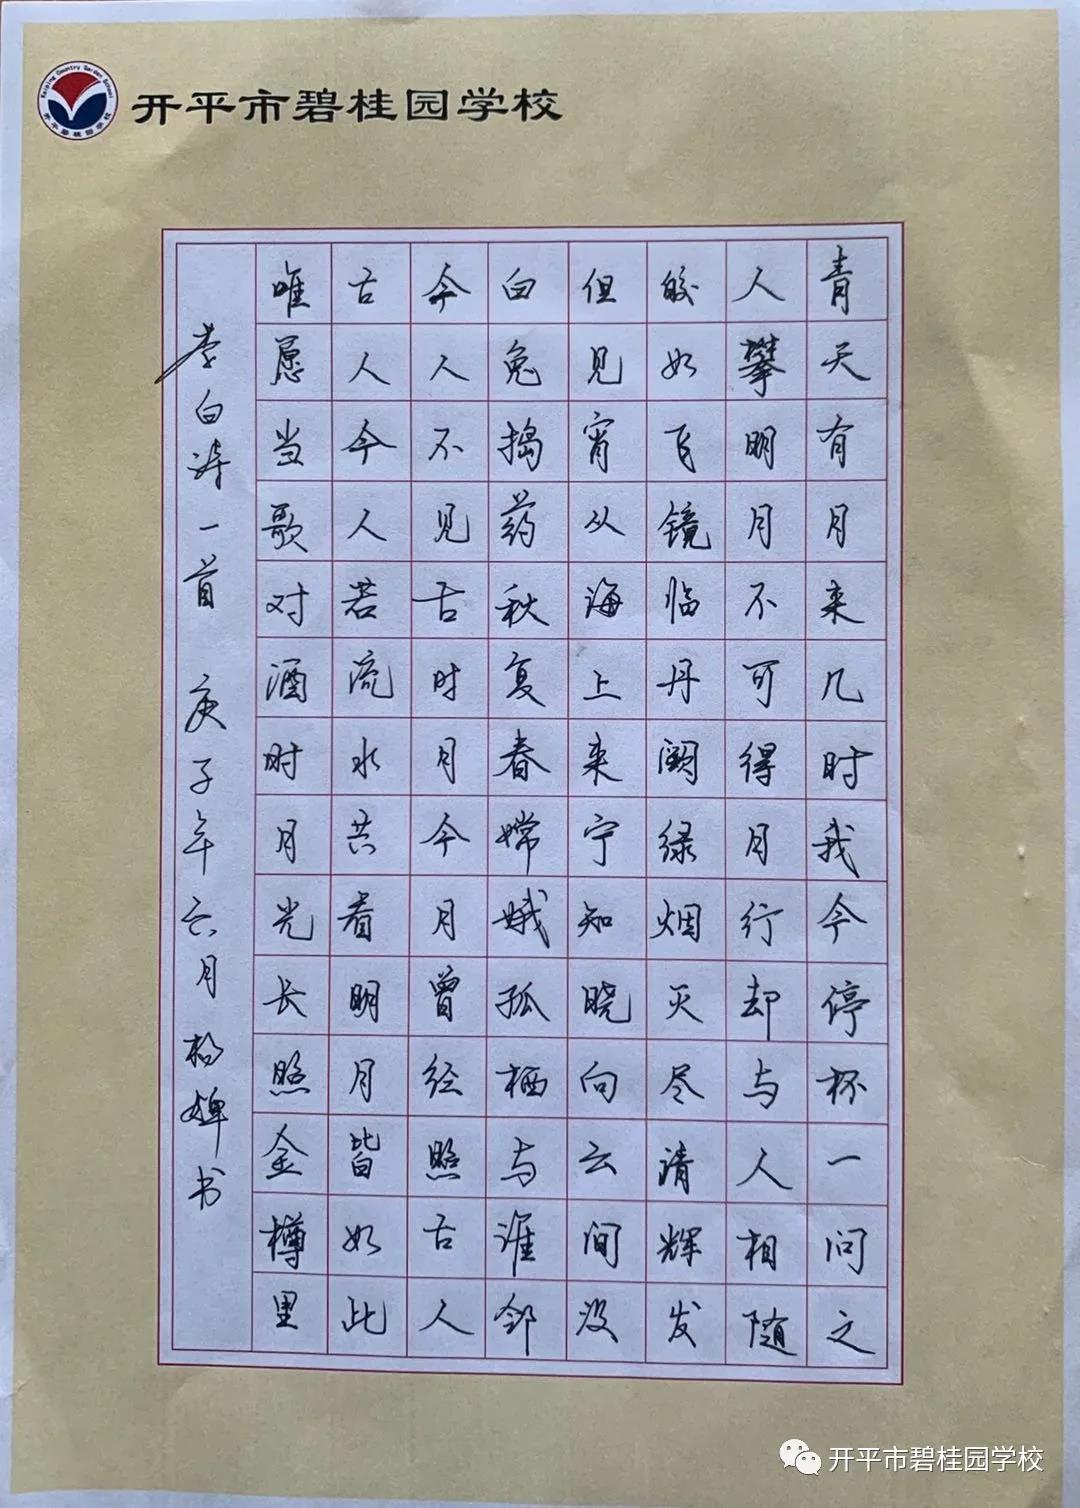 Kaiping Country Garden School
开平碧桂园学校
开平市碧桂园学校
青天有月来几时我今停杯一问之
人攀明月不可得月行却与人相随
皎如飞镜临丹阙绿烟灭尽清辉发
但见宵从海上来宁知晓向云间没
白兔捣药秋复春嫦娥孤栖与谁邻
今人不见古时月今月曾经照古人
古人今人若流水共看明月皆如此
唯愿当歌对酒时月光长照金樽里
李白诗一首 庚子年六月杨婵书
开平市碧桂园学校